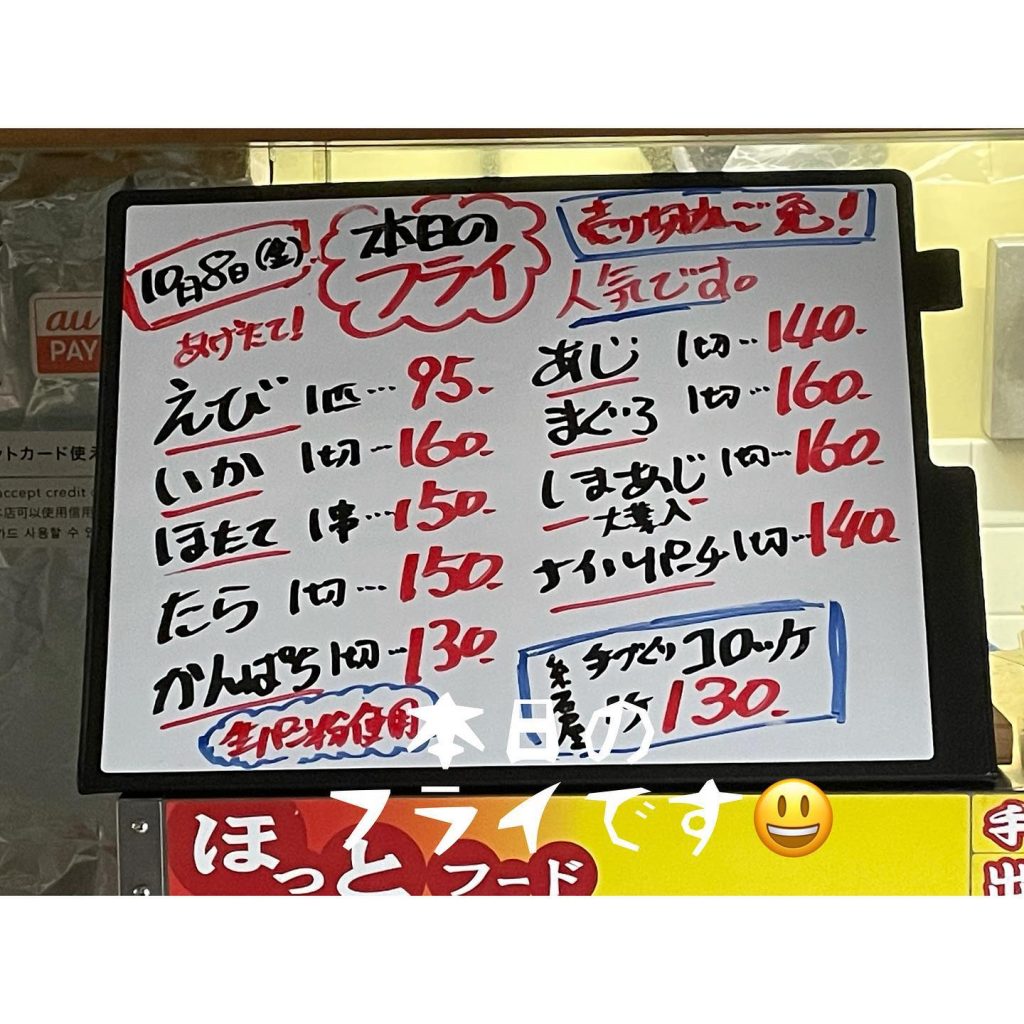 10月8日(金)
本日の
フライ
売り切れご免!
あげたて!
人気です。
えび 1匹…95.
いか 1切…160.
ほたて 1串…150.
たら 1切…150.
がんぱち 1切…130.
生パン粉使用
あじ 1切…140.
まぐろ 1切…160.
しまあじ 1切…160.
大葉入
ナイルパーチ 1切…140.
手づくりコロッケ
1ケ 130.
本日の
フライです😃
au
PAY
ットカード使え
accept credit
本店可以使用信用
카드 사용할 수 있
ほっとフード
手
出